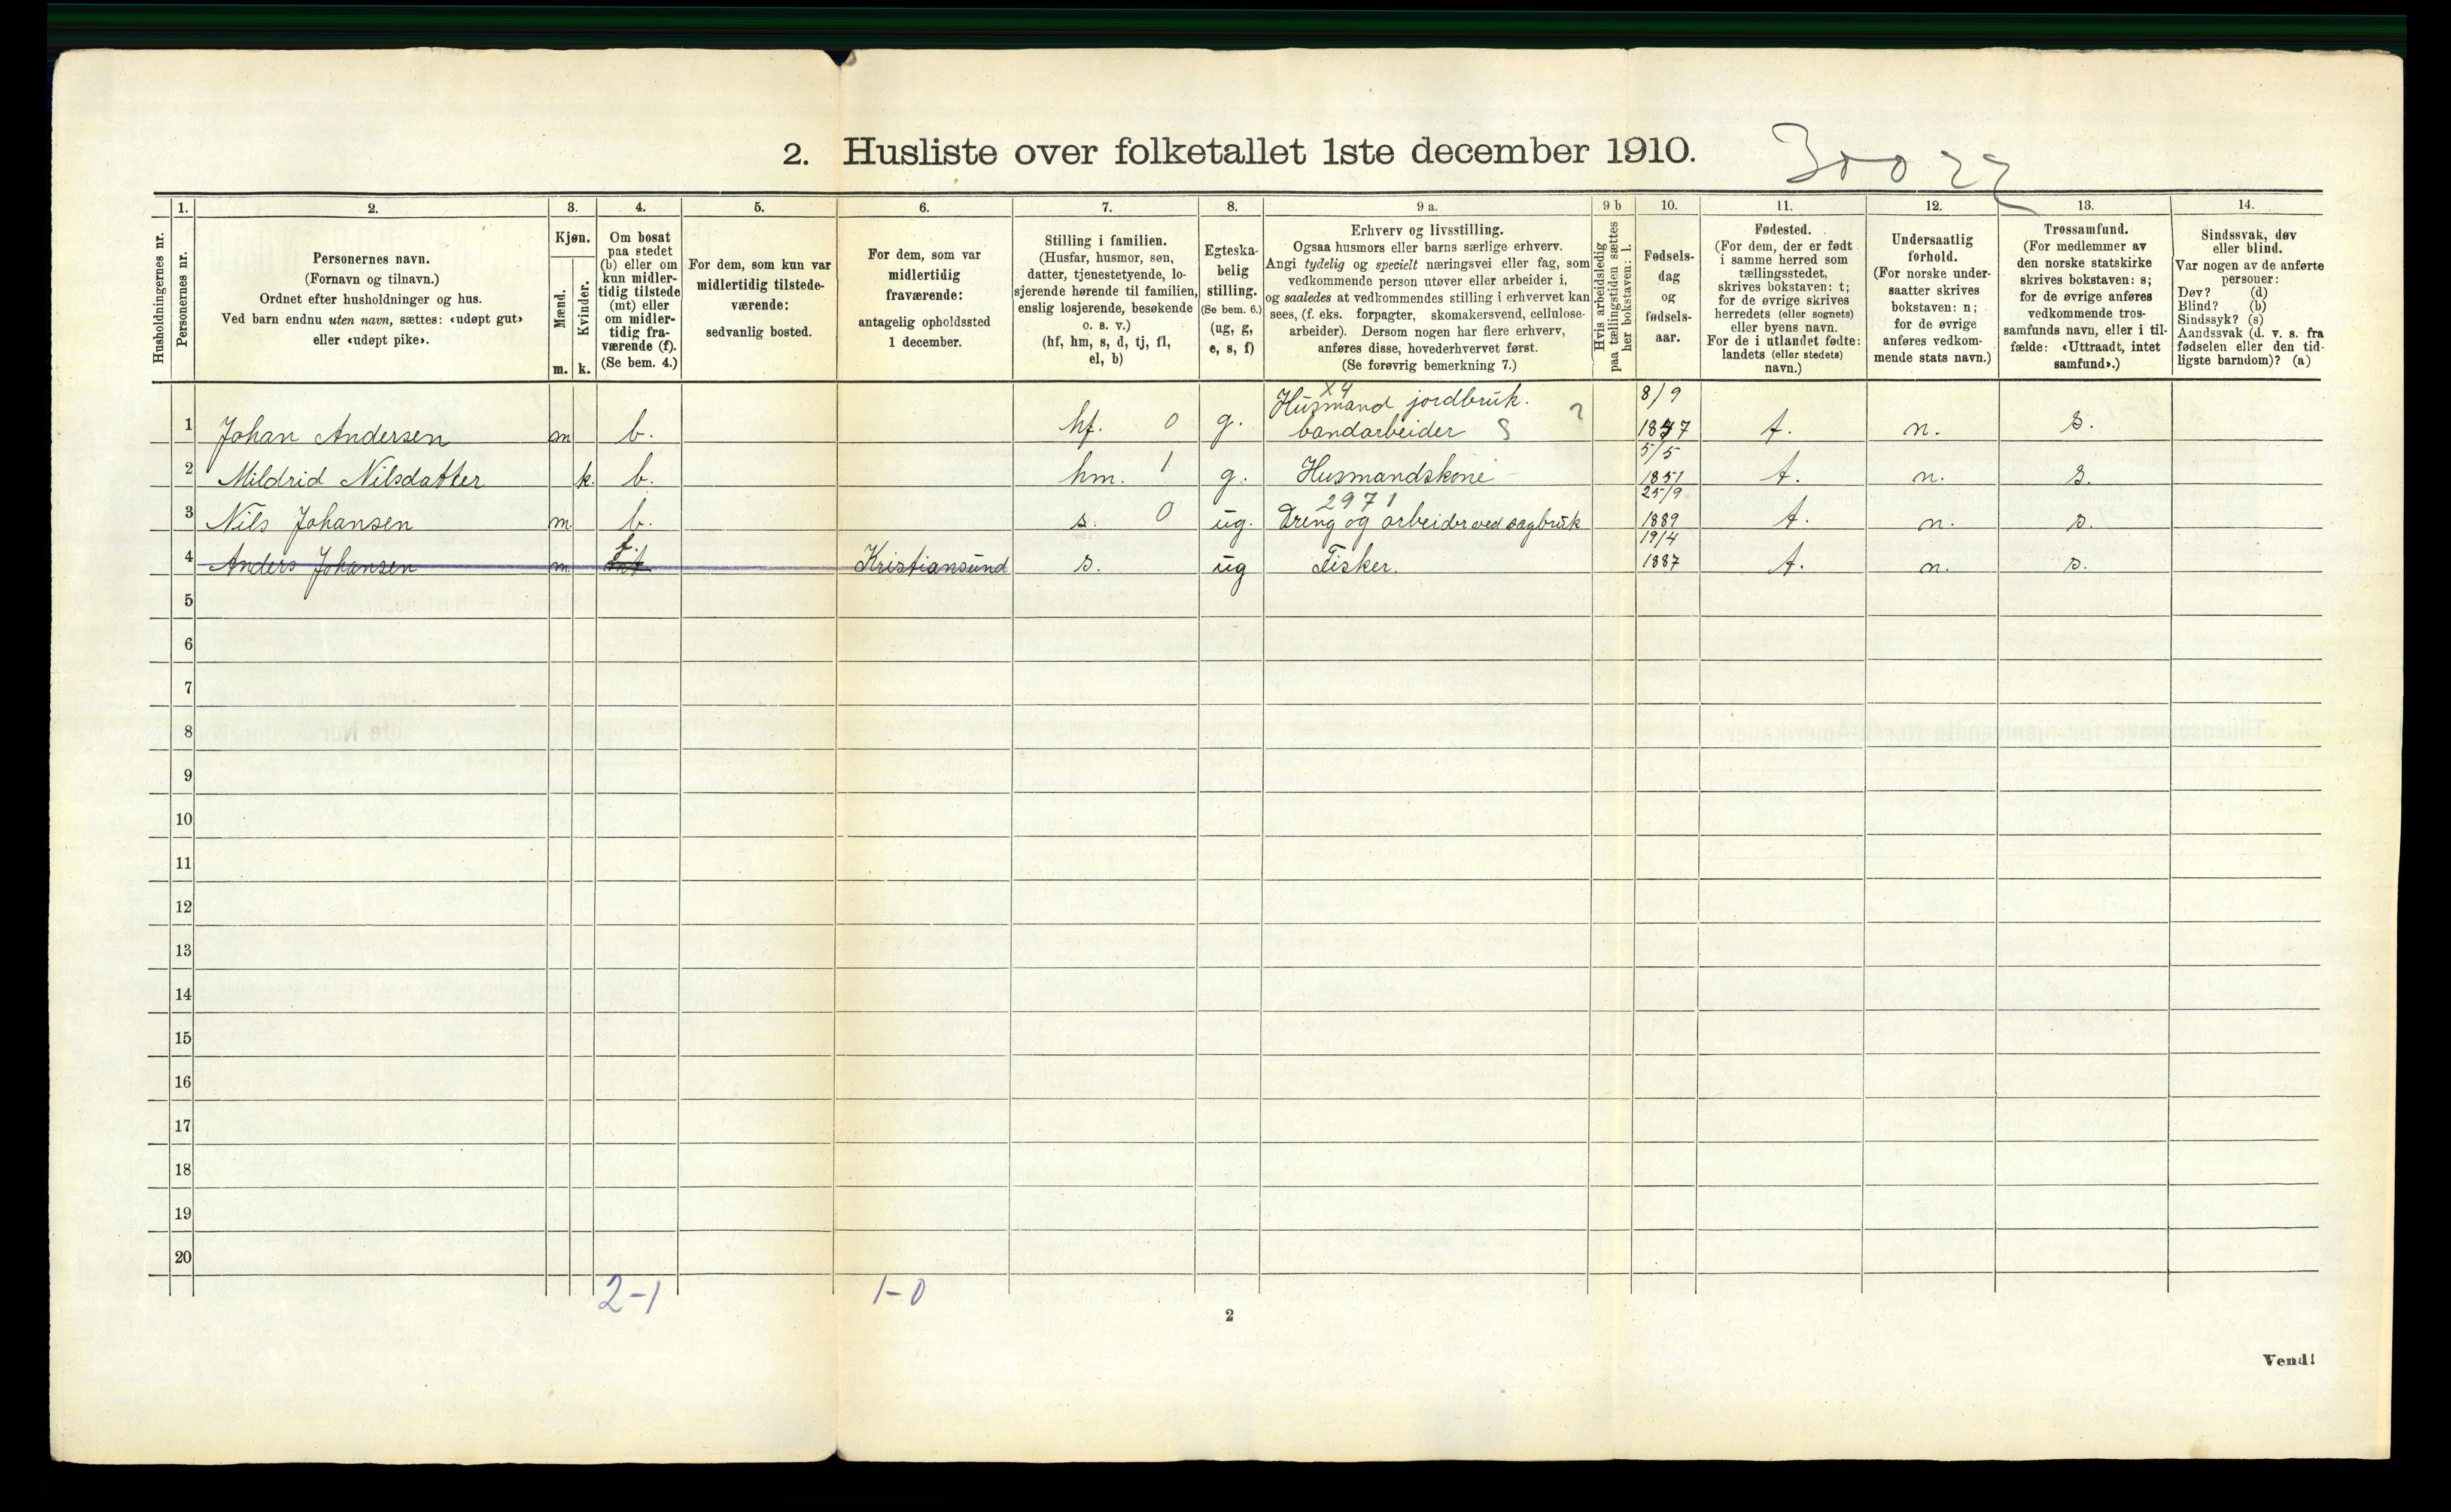 2. Husliste over folketallet 1ste december 1910.
Husholdningernes nr.
1.
Personernes nr.
2.
Personernes navn.
(Fornavn og tilnavn.)
Ordnet efter husholdninger og hus.
Ved barn endnu uten navn, sættes: «udøpt gut»
eller «udøpt pike».
3.
Kjøn.
Mænd.
Kvinder.
m. k.
4.
Om bosat
paa stedet
(b) eller om
kun midler-
tidig tilstede
(mt) eller
om midler-
tidig fra-
værende (f).
(Se bem. 4.)
5.
For dem, som kun var
midlertidig tilstede-
værende:
sedvanlig bosted.
6.
For dem, som var
midlertidig
fraværende:
antagelig opholdssted
1 december.
7.
Stilling i familien.
(Husfar, husmor, søn,
datter, tjenestetyende, lo-
sjerende hørende til familien,
enslig losjerende, besøkende
o. s. v.)
(hf, hm, s, d, tj, fl,
el, b)
8.
Egteska-
belig
stilling.
(Se bem. 6.)
(ug, g,
e, s, f)
9 a.
Erhverv og livsstilling.
Ogsaa husmors eller barns særlige erhverv.
Angi tydelig og specielt næringsvei eller fag, som
vedkommende person utøver eller arbeider i,
og saaledes at vedkommendes stilling i erhvervet kan
sees, (f. eks. forpagter, skomakersvend, cellulose-
arbeider). Dersom nogen har flere erhverv,
anføres disse, hovederhvervet først.
(Se forøvrig bemerkning 7.)
9 b
Hvis arbeidsledig
paa tællingstiden sættes
her bokstaven: l.
10.
Fødsels-
dag
og
fødsels-
aar.
11.
Fødested.
(For dem, der er født
i samme herred som
tællingsstedet,
skrives bokstaven: t;
for de øvrige skrives
herredets (eller sognets)
eller byens navn.
For de i utlandet fødte:
landets (eller stedets)
navn.)
12.
Undersaatlig
forhold.
(For norske under-
saatter skrives
bokstaven: n;
for de øvrige
anføres vedkom-
mende stats navn.)
13.
Trossamfund.
(For medlemmer av
den norske statskirke
skrives bokstaven: s;
for de øvrige anføres
vedkommende tros-
samfunds navn, eller i til-
fælde: «Uttraadt, intet
samfund».)
14.
Sindssvak, døv
eller blind.
Var nogen av de anførte
personer:
Døv? (d)
Blind? (b)
Sindssyk? (s)
Aandssvak (d. v. s. fra
fødselen eller den tid-
ligste barndom)? (a)
X4
Husmand jordbruk. ? 8/9
1 Johan Andersen m b. hf. 0 g. bandarbeider 1847 t. n. s.
5/5
2 Mildrid Nilsdatter k. b. hm. 1 g. Husmandskone 1851 t. n. s.
2971 25/9
3 Nils Johansen m. b. s. 0 ug. Dreng og arbeider ved sagbruk 1889 t. n. s.
f. 19/4
4 Anders Johansen m. mt Kristiansund s. ug Fisker. 1887 t. n. s.
5
6
7
8
9
10
11
12
13
14
15
16
17
18
19
20
2-1 1-0
2
Vend!